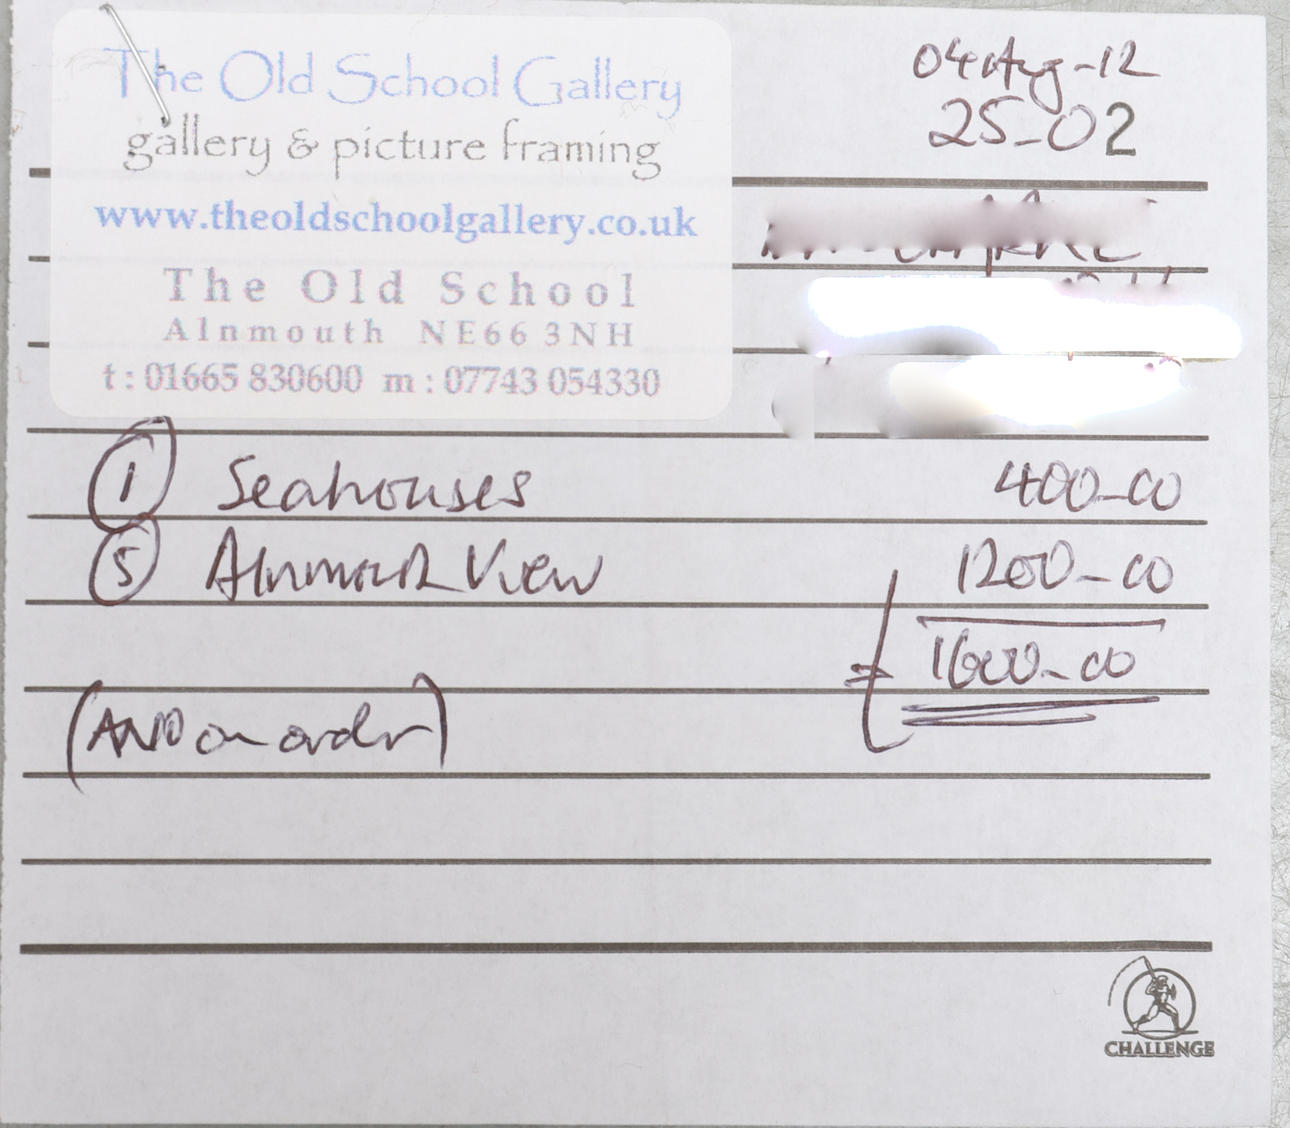 The Old School Gallery
gallery & picture framing
www.theoldschoolgallery.co.uk
The Old School
Alnmouth NE66 3NH
t: 01665 830600 m: 07743 054330
04 Aug-12
25-02
① Seahouses 400-00
⑤ Alnmouth View 1200-00
= 1600-00
(AND on order)
CHALLENGE